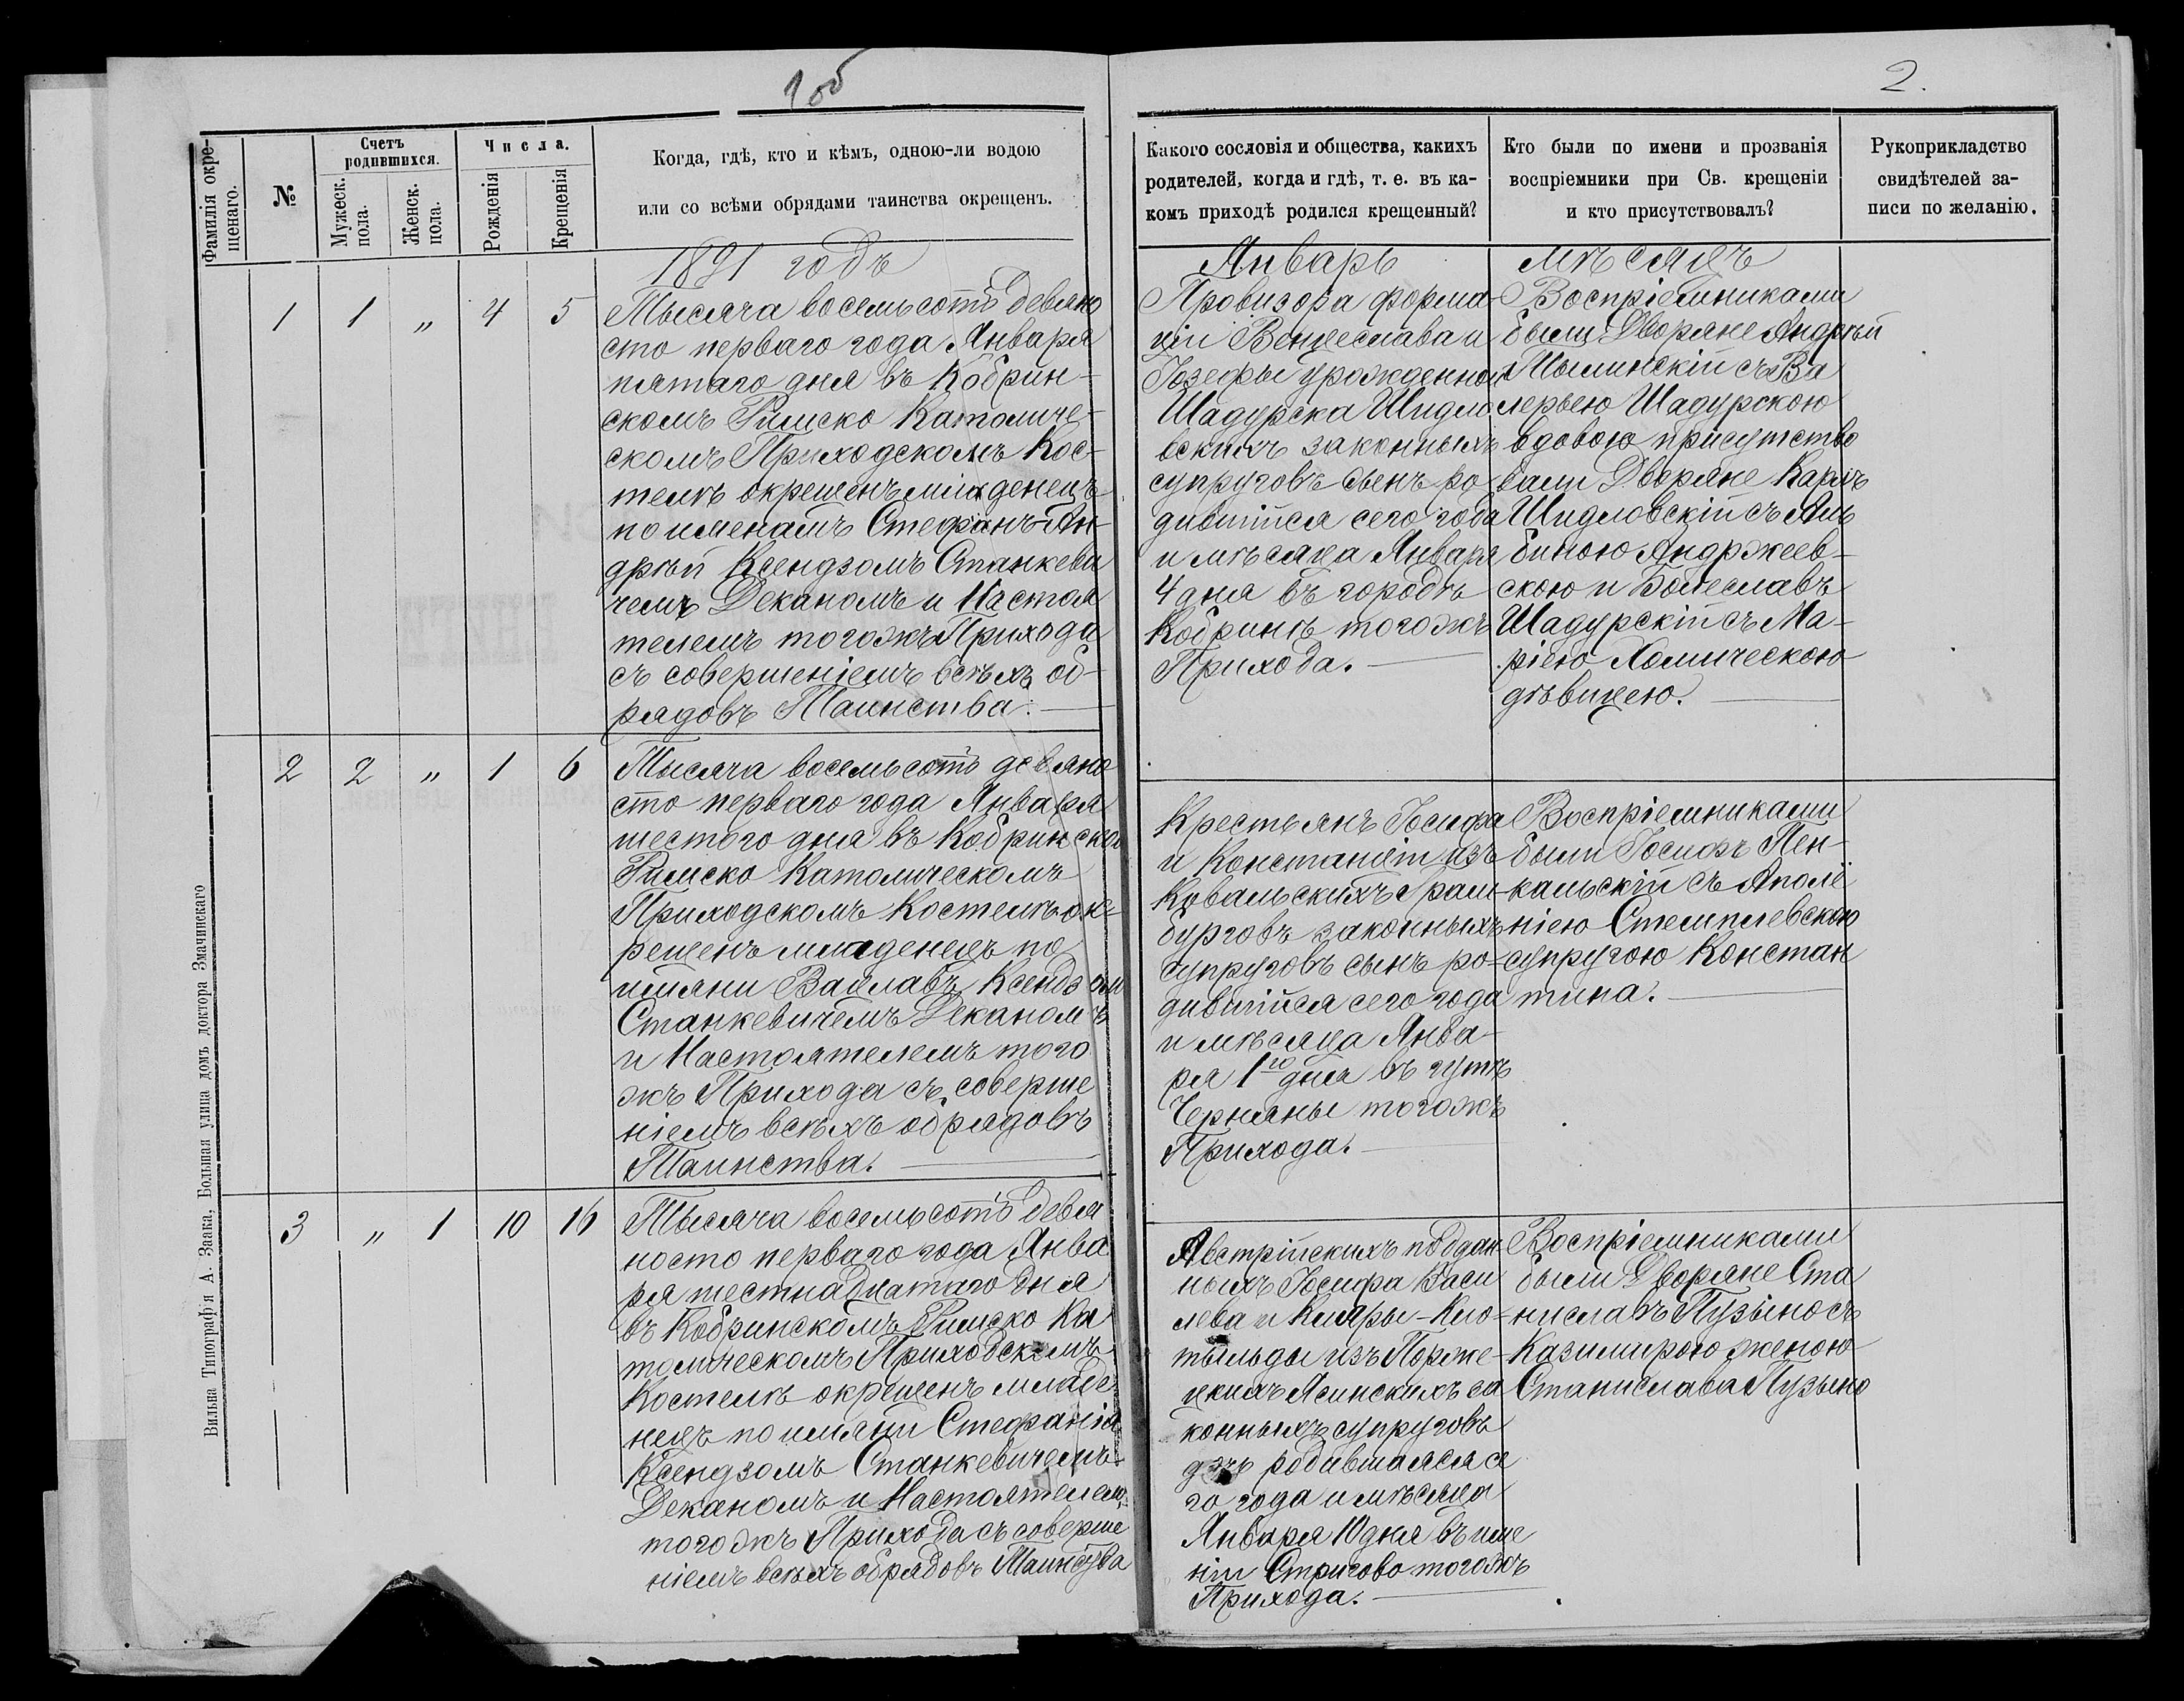 1 об
2.
Фамилія окре-
щенаго.
№
Счетъ
родившихся.
Мужеск.
пола.
Женск.
пола.
Числа.
Рожденія
Крещенія
Когда, гдѣ, кто и кѣмъ, одною-ли водою
или со всѣми обрядами таинства окрещенъ.
Какого сословія и общества, какихъ
родителей, когда и гдѣ, т. е. въ ка-
комъ приходѣ родился крещенный?
Кто были по имени и прозванія
воспріемники при Св. крещеніи
и кто присутствовалъ?
Рукоприкладство
свидѣтелей за-
писи по желанію.
1891 годъ
Январь
мѣсяцъ
1 1 „ 4 5
Тысяча восемьсотъ девяно
сто перваго года Января
пятаго дня въ Кобрин-
скомъ Римско Католиче-
скомъ Приходскомъ Кос-
телѣ окрещенъ младенецъ
по именамъ Стефанъ-Ан-
дрей Ксендзомъ Станкеви
чемъ Деканомъ и Настоя
телемъ тогожъ Прихода
съ совершеніемъ всѣхъ об-
рядовъ Таинства.
Провизора форма-
ціи Венцеслава и
Іозефы урожденной
Шадурска Шидло
вскихъ законныхъ
супруговъ сынъ ро
дившійся сего года
и мѣсяца Января
4 дня въ городѣ
Кобринѣ тогожъ
Прихода.
Воспріемниками
были Дворяне Андрей
съ Ва
лерьею Шадурскою
вдовою присутство
вали Дворяне Карлъ
Шидловскій съ Аль
биною Анджеев-
скою и Болеславъ
Шадурскій съ Ма-
ріею
дѣвицею.
2 2 „ 1 6
Тысяча восемьсотъ девяно
сто перваго года Января
шестого дня въ Кобринско
Римско Католическомъ
Приходскомъ Костелѣ ок-
рещенъ младенецъ по
имяни Вацлавъ Ксендзом
Станкевичемъ Деканомъ
и Настоятелемъ того
жъ Прихода съ соверше
ніемъ всѣхъ обрядовъ
Таинства.
Крестьянъ Іосифа
и Констанціи изъ
Ковальскихъ Грам-
бурговъ законныхъ
супруговъ сынъ ро-
дившійся сего года
и мѣсяца Янва-
ря 1го дня въ гутѣ
Черняны тогожъ
Прихода.
Воспріемниками
были Іосифъ Пен-
кальскій съ Аполё
ніею Стемплевскою
супругою Констан
тина.
3 „ 1 10 16
Тысяча восемьсотъ девя
носто перваго года Янва
ря шестнадцатаго дня
въ Кобринскомъ Римско Ка
толическомъ Приходскомъ
Костелѣ окрещенъ младе
нецъ по имяни Стефанія
Ксендзомъ Станкевичемъ
Деканомъ и Настоятелем
тогожъ Прихода съ соверше
ніемъ всѣхъ обрядовъ Таинства
Австрійскихъ поддан
ныхъ Іосифа Васи
лева и Кляры-Кло-
тыльды изъ Порже-
цкихъ Ясинскихъ за
конныхъ супруговъ
родившаяся се
го года и мѣсяца
Января 10 дня въ име
ніи Стригово тогожъ
Прихода.
Воспріемниками
были Дворяне Ста
ниславъ Пузыно съ
Казимирою женою
Станислава Пузыно
Вильна Типографія А. Заака, Большая улица домъ доктора Змачинскаго